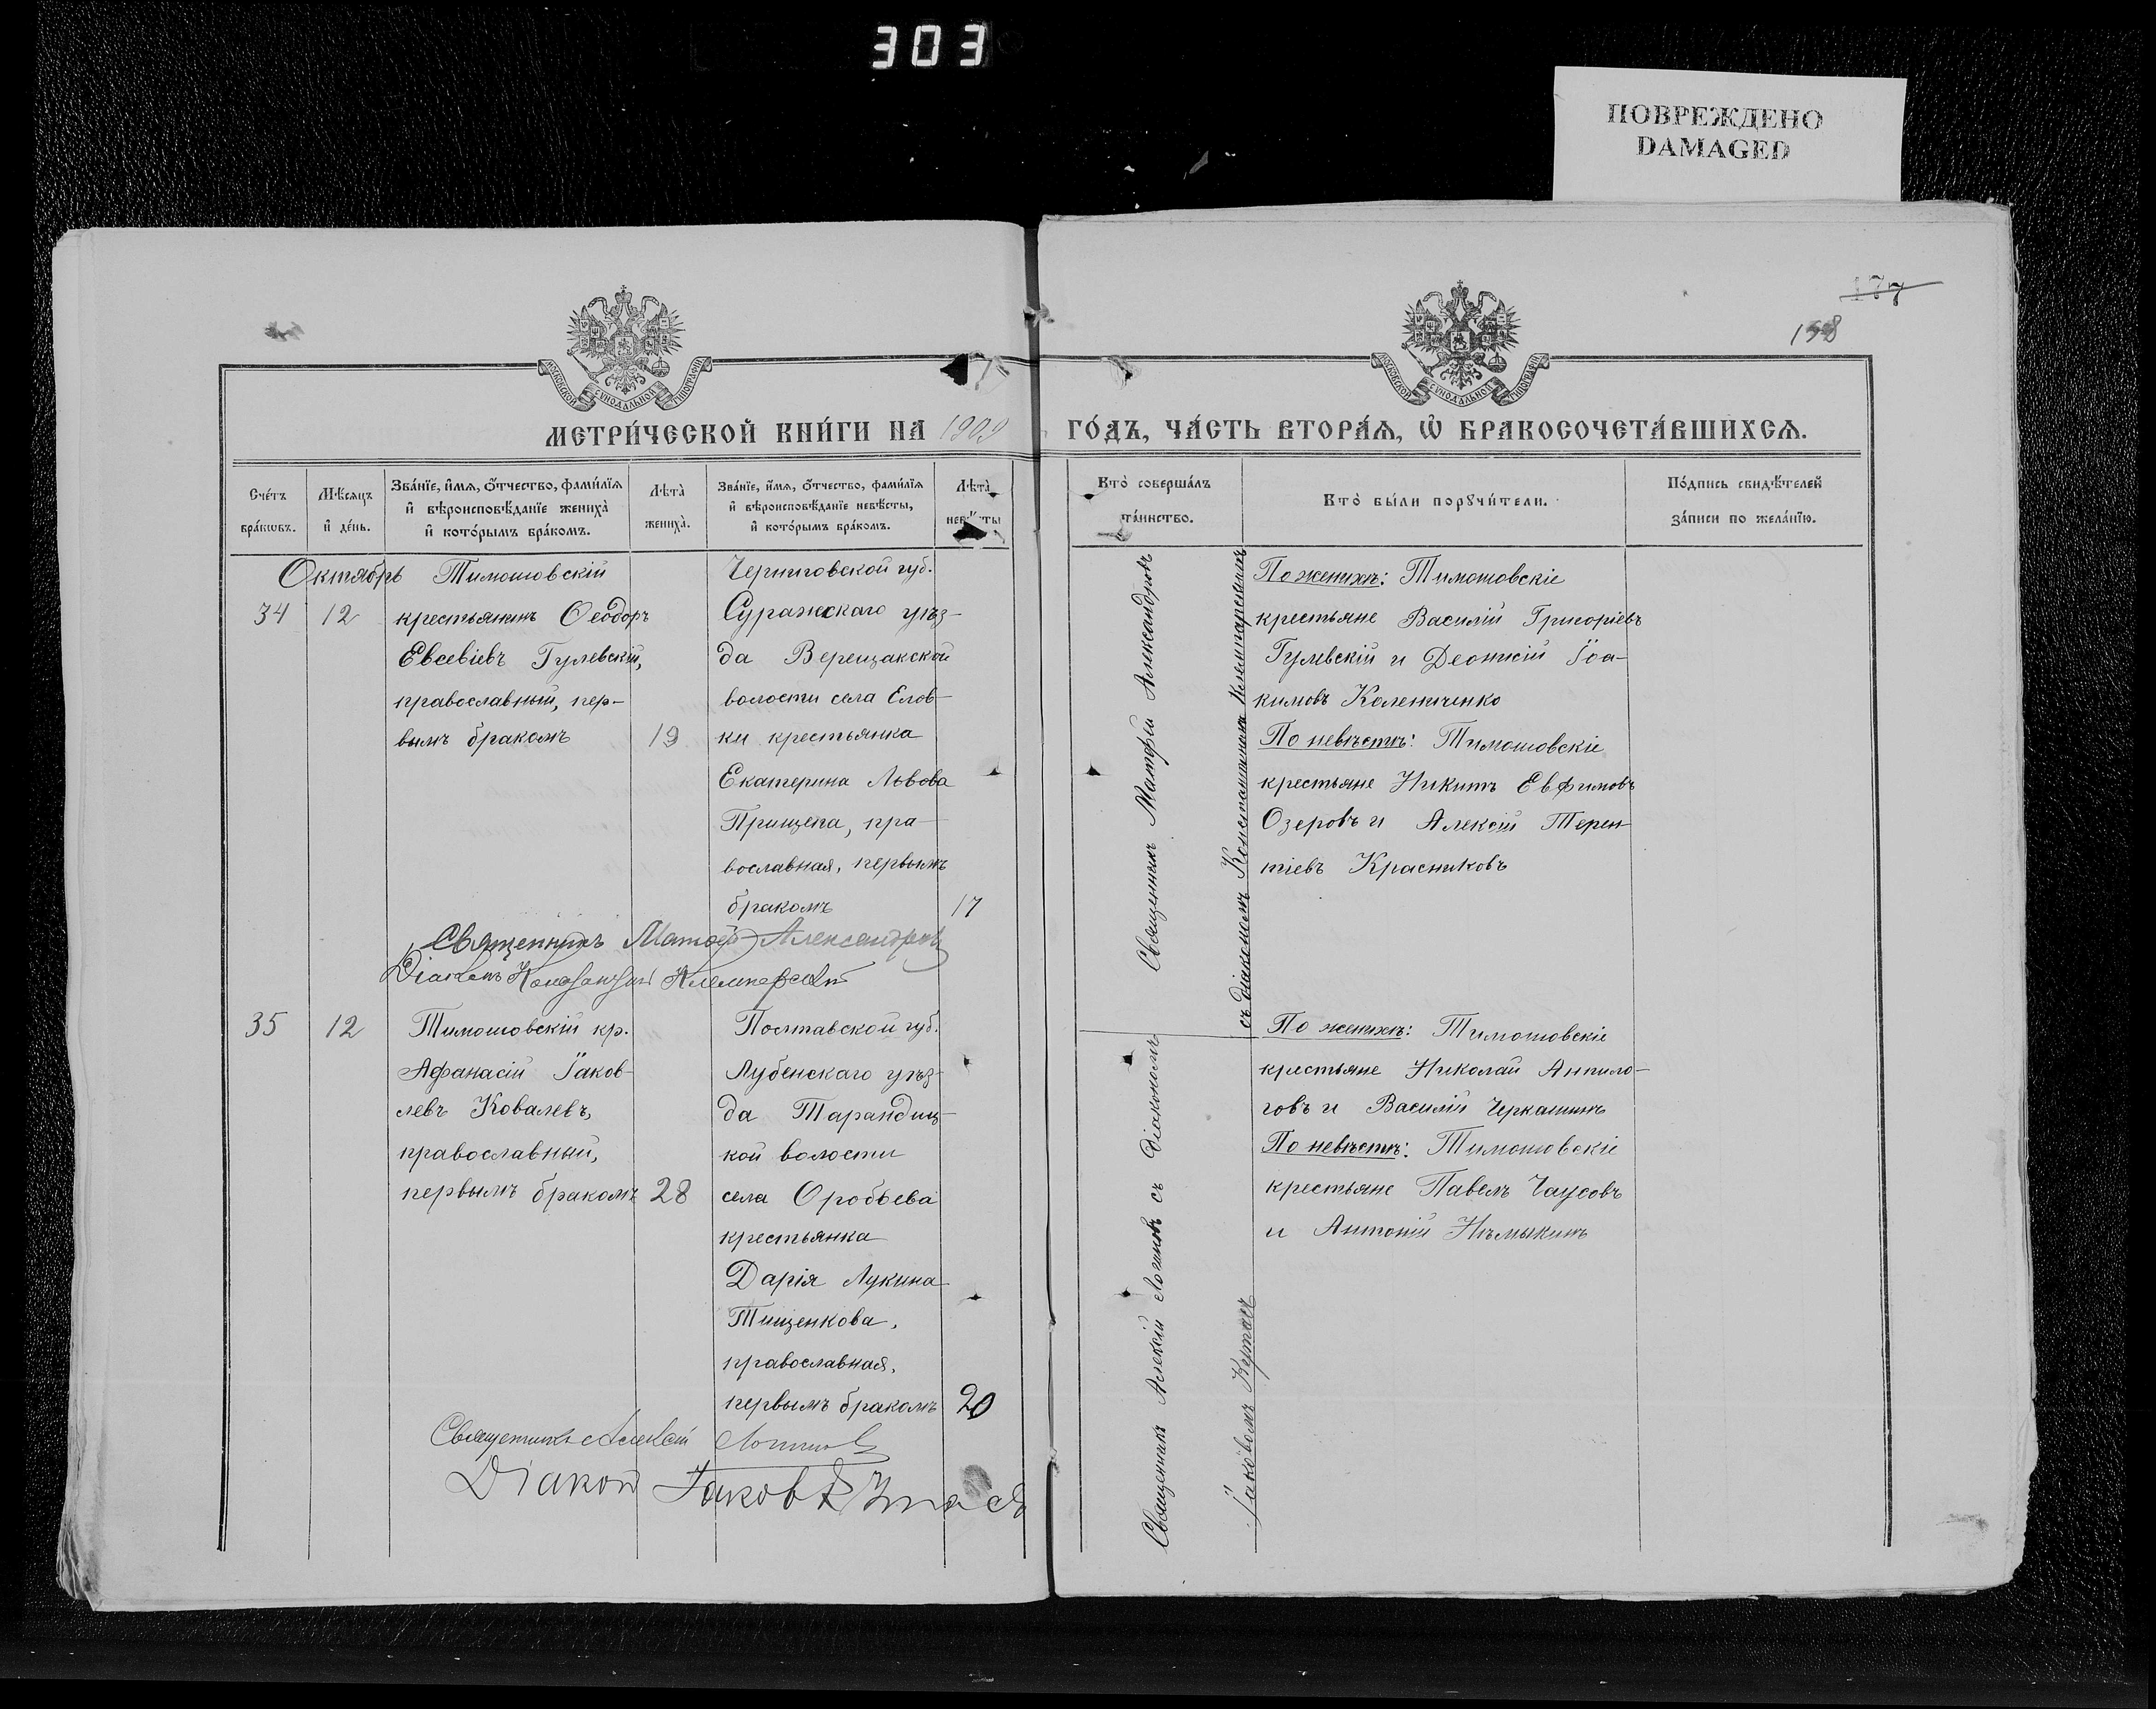 303
ПОВРЕЖДЕНО
DAMAGED
177
МОСКОВСКОЙ СѴНОДАЛЬНОЙ ТИПОГРАФІИ
МОСКОВСКОЙ СѴНОДАЛЬНОЙ ТИПОГРАФІИ
МЕТРИ́ЧЕСКОЙ КНИ́ГИ НА 1909
ГО́ДЪ, ЧА́СТЬ ВТОРА́Ѧ, Ѡ҆ БРАКОСОЧЕТА́ВШИХСѦ.
Сче́тъ
бра́кѡвъ.
Мѣ́сѧцъ
и҆ де́нь.
Зва́нїе, и҆́мѧ, ѻ҆́тчество, фами́лїѧ
и҆ вѣроисповѣ́данїе жениха̀
и҆ кото́рымъ бра́комъ.
Лѣта̀
жениха̀.
Зва́нїе, и҆́мѧ, ѻ҆́тчество, фами́лїѧ
и҆ вѣроисповѣ́данїе невѣ́сты,
и҆ кото́рымъ бра́комъ.
Лѣта̀
невѣ́сты
Кто̀ соверша́лъ
та́инство.
Кто̀ бы́ли порꙋчи́тели.
По́дпись свидѣ́телей
за́писи по жела́нїю.
Октябрь
34
12
Тимошовскій
крестьянинъ Ѳеодоръ
Евсевіевъ Гулевскій,
православный, пер-
вымъ бракомъ
19
Черниговской губ.
Суражскаго уѣз-
да Верещакской
волости села Елов-
ки крестьянка
Екатерина Львова
Прищепа, пра-
вославная, первымъ
бракомъ
17
Священникъ Матѳій Александровъ
съ діакономъ Константиномъ
По женихѣ: Тимошовскіе
крестьяне Василій Григоріевъ
Гулевскій и Деонисій Іоа-
кимовъ Коленченко
По невѣстѣ: Тимошовскіе
крестьяне Никита Евфимовъ
Озеровъ и Алексій Терен-
тіевъ Красниковъ
Священникъ Матѳій Александровъ
Діаконъ Константинъ
35
12
Тимошовскій кр.
Афанасій Іаков-
левъ Ковалевъ,
православный,
первымъ бракомъ
28
Полтавской губ.
Лубенскаго уѣз-
да Тарандин-
кой волости
села Оробьева
крестьянка
Дарія Лукина
Тищенкова,
православная,
первымъ бракомъ
20
Священникъ Алексій Логиновъ съ діакономъ
Іаковомъ Кутасъ
По женихѣ: Тимошовскіе
крестьяне Николай Анпило-
говъ и Василій Черкашинъ
По невѣстѣ: Тимошовскіе
крестьяне Павелъ Чаусовъ
и Антоній Нѣмыкинъ
Священникъ Алексій Логиновъ
Діаконъ Іаковъ Кутасъ